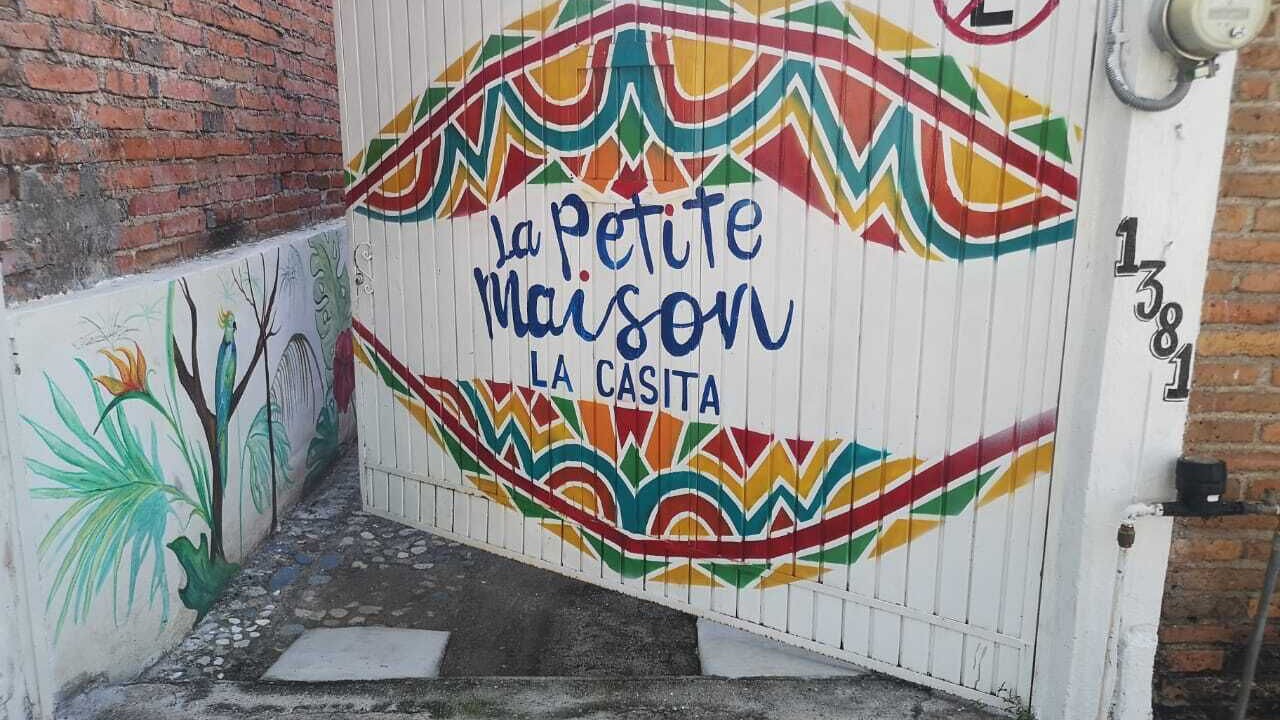 E
La Petite
Maison
LA CASITA
1381